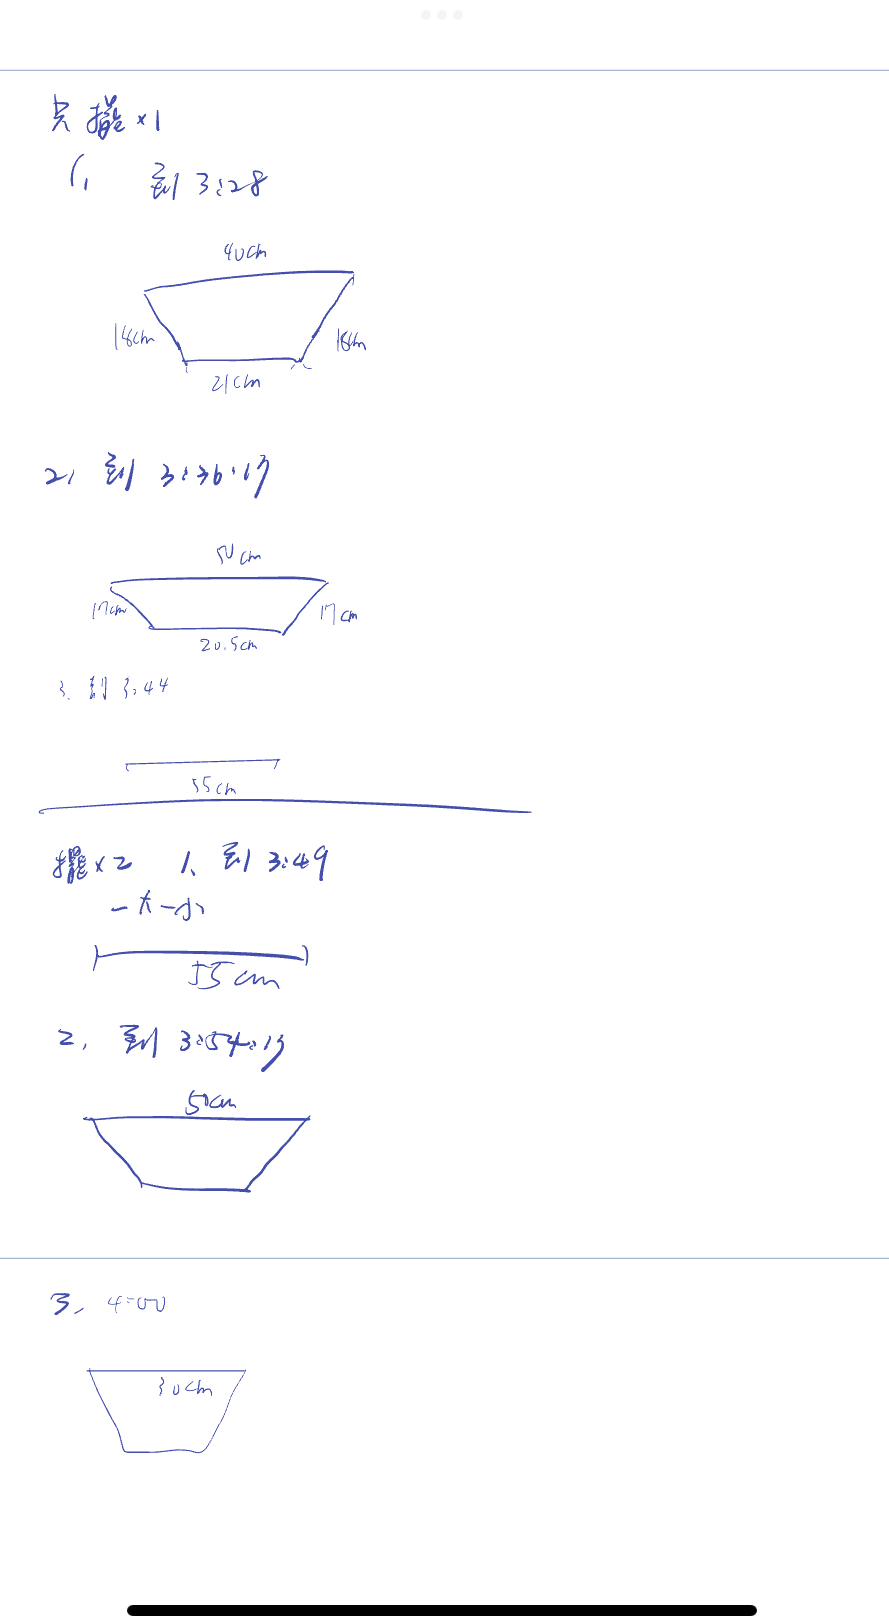 只擺×1
1、 到 3:28
40cm
18cm 18cm
21cm
2、到 3:36:17
50cm
17cm 17cm
20.5cm
3、到 3:44
55cm
擺×2 1、到 3:49
一大一小
55cm
2、到 3:54:17
50cm
3、4:00
30cm